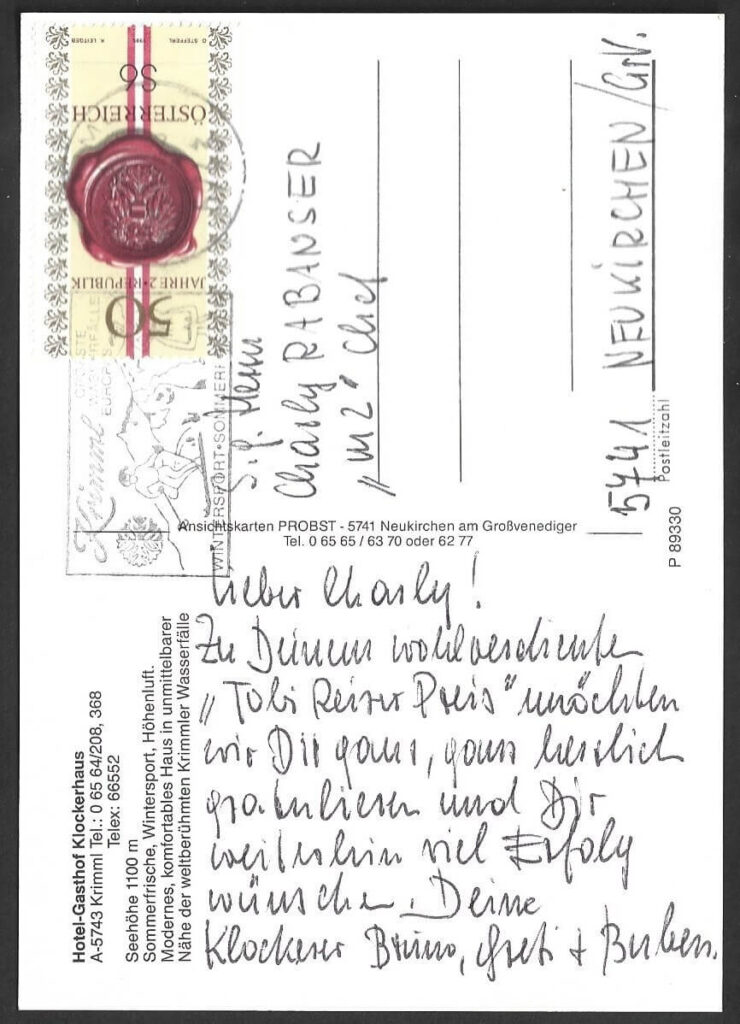 Hotel-Gasthof Klockerhaus
A-5743 Krimml Tel.: 0 65 64/208, 368
Telex: 66552
Seehöhe 1100 m
Sommerfrische, Wintersport, Höhenluft.
Modernes, komfortables Haus in unmittelbarer
Nähe der weltberühmten Krimmler Wasserfälle
Lieber Charly!
Zu Deinem wohlverdienten
„Tobi Reiser Preis" möchten
wir Dir ganz, ganz herzlich
gratulieren und Dir
weiterhin viel Erfolg
wünschen. Deine
Klockerer Bruno, Greti + Buben.
Ansichtskarten PROBST - 5741 Neukirchen am Großvenediger
Tel. 0 65 65 / 63 70 oder 62 77
P 89330
Krimml
GRÖSSTE
WASSERFÄLLE
EUROPAS
WINTERSPORT·SOMMERF
50
JAHRE 2·REPUBLIK
ÖSTERREICH
S6
O. STEFFERL 1995 K. LEITGEB
S. g. Herrn
Charly RABANSER
„m2" Chef
5741 NEUKIRCHEN /GrV.
Postleitzahl